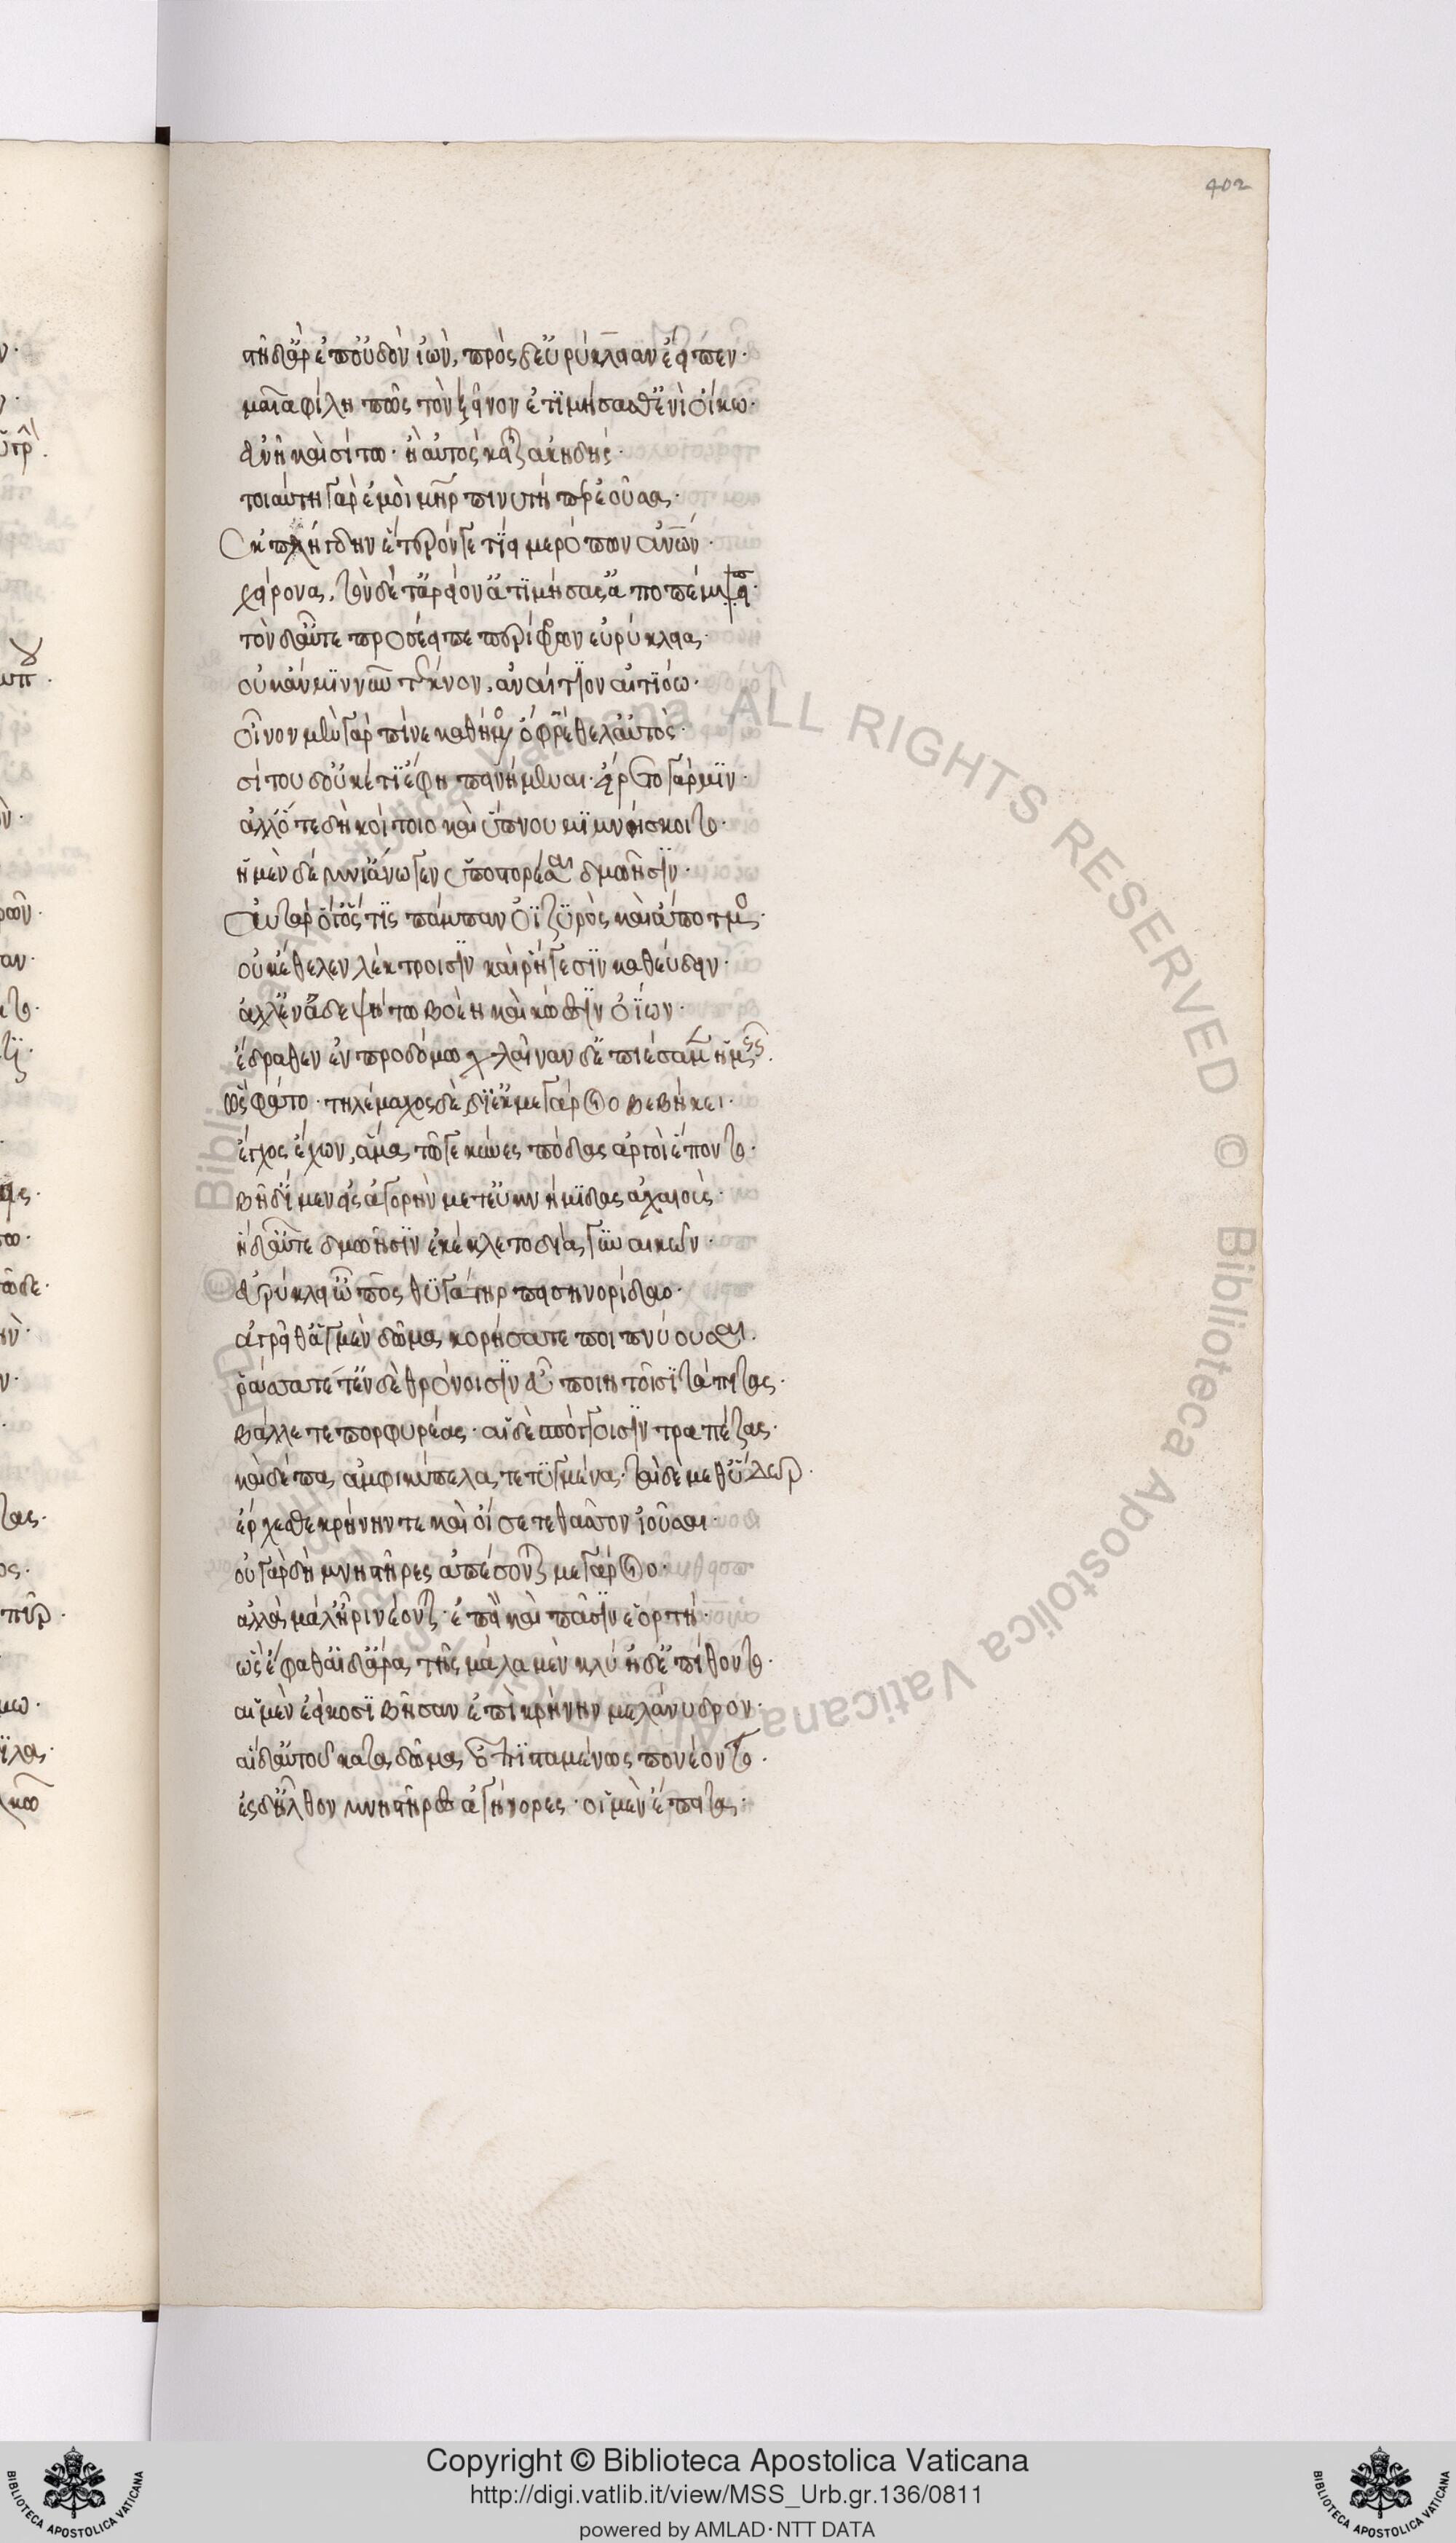 402
στῆ δ' ἄρ ἐπ' οὐδὸν ἰὼν, πρὸς δ' εὐρύκλειαν ἔειπεν·
μαῖα φίλη πῶς τὸν ξεῖνον ἐτϊμήσασθ' ἐνὶ οἴκω·
εὐνῆ καὶ σίτω· ἢ αὐτὸς κεῖται ἀκηδής·
τοιαύτη γὰρ ἐμοὶ μήτηρ πινυτή περ ἐοῦσα·
ἐμπλήγδην ἕτερόν γε τίει μερόπων ἀνθρώπων·
χείρονα, τὸν δέ τ' ἀρείον' ἀτϊμήσασ' ἀποπέμπει·
τὸν δ' αὖτε προσέειπε περίφρων εὐρύκλεια·
οὐκ ἄν μϊν νῦν τέκνον, ἀναίτϊον αἰτϊόω·
οἶνον μὲν γὰρ πῖνε καθήμενος ὄφρ' ἔθελ' αὐτὸς·
σίτου δ' οὐκέτϊ ἔφη πεινήμεναι· εἴρετο γάρ μϊν·
ἀλλ' ὅτε δὴ κοίτοιο καὶ ὕπνου μϊμνήσκοιτο·
ἡ μὲν δέμνι' ἄνωγεν ὑποστορέσαι δμωῆσϊν·
αὐτὰρ ὅγ' ὥς τϊς πάμπαν ὀϊζϋρὸς καὶ ἄποτμος·
οὐκ ἔθελεν λέκτροισϊν καὶ ῥήγεσϊν καθεύδειν·
ἀλλ' ἐν ἀδεψήτω βοέη καὶ κώεσϊν οἰῶν·
ἔδραθεν ἐν προδόμω χλαῖναν δ' ἐπιέσαμεν ἡμεῖς·
ὣς φάτο· τηλέμαχος δὲ δϊὲκ μεγάροιο βεβήκει·
ἔγχος ἔχων, ἅμα τῶγε κύνες πόδας ἀργοὶ ἕποντο·
βῆ δ' ἴμεν εἰς ἀγορὴν μετ' ἐϋκνήμϊδας ἀχαιούς·
ἡ δ' αὖτε δμωῆσϊν ἐκέκλετο δῖα γυναικῶν·
εὐρύκλει' ὦπος θϋγάτηρ πεισηνορίδαο·
ἀγρεῖθ' αἱ μὲν δῶμα κορήσατε ποιπνύουσαι·
ῥάσσατέ τ' ἔν δὲ θρόνοισϊν εὐποιήτοισϊ τάπητας·
βάλλετε πορφυρέας· αἱ δὲ σπόγγοισϊν τραπέζας·
καὶ δέπα ἀμφικύπελα τετϋγμένα· ταὶ δὲ μεθ' ὕδωρ·
ἔρχεσθε κρήνην τε καὶ οἴσετε θᾶσσον ἰοῦσαι·
οὐ γὰρ δὴ μνηστῆρες ἀπέσονται μεγάροιο·
ἀλλὰ μάλ' ἦρι νέονται· ἐπεὶ καὶ πᾶσϊν ἑορτή·
ὣς ἔφαθ' αἱ δ' ἄρα τῆς μάλα μὲν κλύ' ἠδ' ἐπίθοντο·
αἱ μὲν ἐείκοσϊ βῆσαν ἐπὶ κρήνην μελάνυδρον·
αἱ δ' αὐτοῦ κατὰ δῶμα ἐπϊσταμένως πονέοντο·
ἐς δ' ἦλθον μνηστῆρες ἀγήνορες· οἱ μὲν ἔπειτα·
Copyright © Biblioteca Apostolica Vaticana
http://digi.vatlib.it/view/MSS_Urb.gr.136/0811
powered by AMLAD·NTT DATA